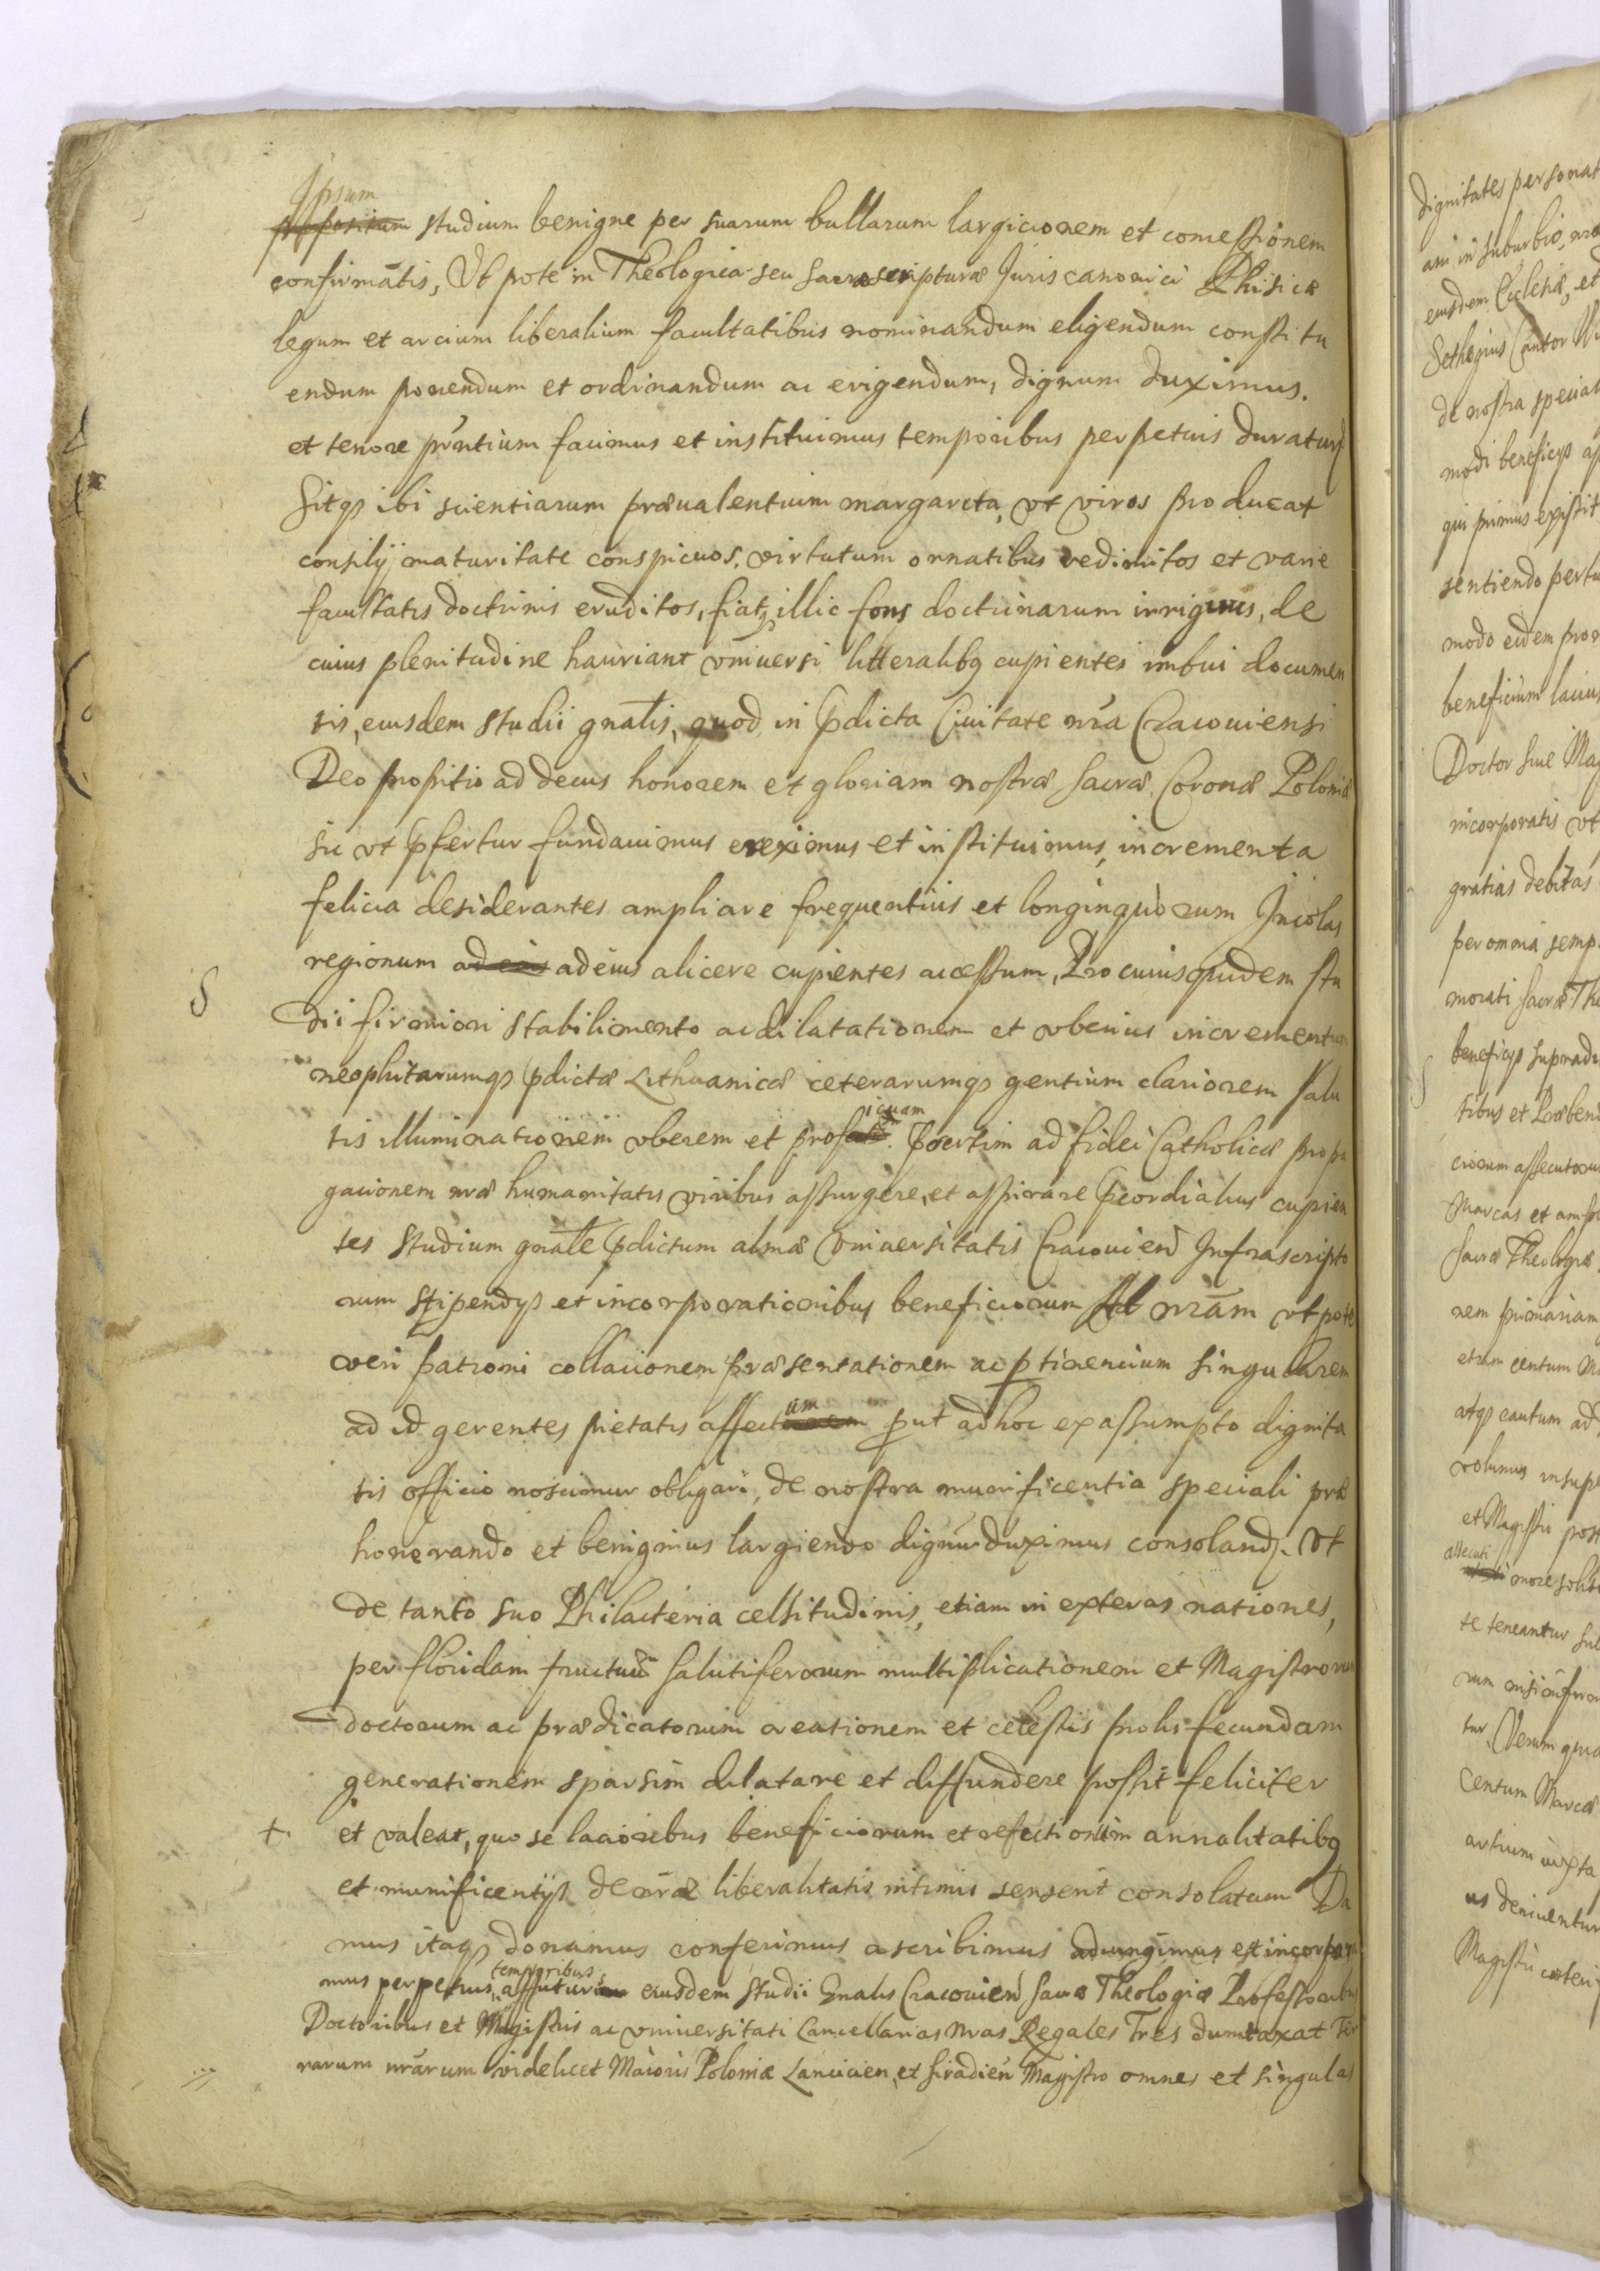 Ipsum
studium benigne per suarum bullarum largicionem et concessionem
confirmatis, Ut pote in Theologica seu sacræ scripturæ Juris canonici Phisicæ
legum et arcium liberalium facultatibus nominandum eligendum constitu
endum ponendum et ordinandum ac erigendum, dignum duximus.
et tenore pñtium facimus et instituimus temporibus perpetuis duratur
Sitqз ibi scientiarum prævalentium margareta, ut viros producat
consilij maturitate conspicuos, virtutum ornatibus redimitos et varie
facultatis doctrinis eruditos, fiatqз illic fons doctrinarum irriguus, de
cuius plenitudine hauriant universi litteralibꝯ cupientes imbui documen
tis, eiusdem studii gnalis, quod in pdicta Civitate nra Cracouiensi
Deo propitio ad decus honorem et gloriam nostræ sacræ Coronæ Poloniæ
sic ut pfertur fundavimus ereximus et instituimus, incrementa
felicia desiderantes ampliare frequentius et longinquorum Incolas
regionum ad eius ad eius alicere cupientes accessum, Pro cuius quidem stu
dii firmiori stabilimento ac dilatationem et uberius incrementum
neophitarumqз pdictæ Lithuanicæ ceterarumqз gentium clariorem salu
icuam
tis illuminationem uberem et prof pсertim ad fidei Catholicæ propa
gacionem nræ humanitatis viribus assurgere, et aspirare pcordialius cupien
tes studium gnale pdictum almæ Universitatis Cracouien Infrascripto
rum stipendys et incorporationibus beneficiorum Ad nram ut pote
veri patroni collacionem præsentationem ac ptinencium singularem
um
ad id gerentes pietatis affect put ad hoc ex assumpto dignita
tis officio noscimur obligari, de nostra munificentia speciali præ
honorando et benignius largiendo dignu duximus consoland. Ut
de tanto suo Philacteria celsitudinis, etiam in exteras nationes,
per floridam fructuu salutiferorum multiplicationem et Magistrorum
doctorum ac prædicatorum creationem et celestis prolis fecundam
generationem sparsim dilatare et diffundere possit feliciter
+ et valeat, quo se lacioribus beneficiorum et refectionum annalitatibꝯ
et munificentijs de nræ liberalitatis intimis senserit consolatum Da
mus itaqз donamus conferimus ascribimus adiungimus et incorpora
temporibus
mus perpetuis affutur eiusdem studii Gnalis Cracouien sacræ Theologiæ Professoribus
Doctoribus et Magistris ac universitati Cancellarias nras Regales Tres dumtaxat Ter
rarum nrarum videlicet Maioris Poloniæ Lancicien, et Siradien Magistro omnes et singulas
dignitates personat
ani in suburbio, nræ
eiusdem Ecclesiæ, et
Sethegius Cantor
de nostra special
modi beneficys
qui primus existit
sentiendo
modo eidem
beneficium
Doctor sive Mag
incorporatis ut
gratias debitas
per omnia semp
morati sacræ The
beneficys supradi
tibus et Præbend
ciorum assecutorum
Marcas et
Sacræ Theologiæ
nem primariam
etiam centum Ma
atqз eantum ad
volumus insup
et Magistri post
assecuti
more solit
te teneantur
rum nisi
tur. Verum qua
Centum Marcæ
artium iuxta
us deriventur
Magistri ceteri